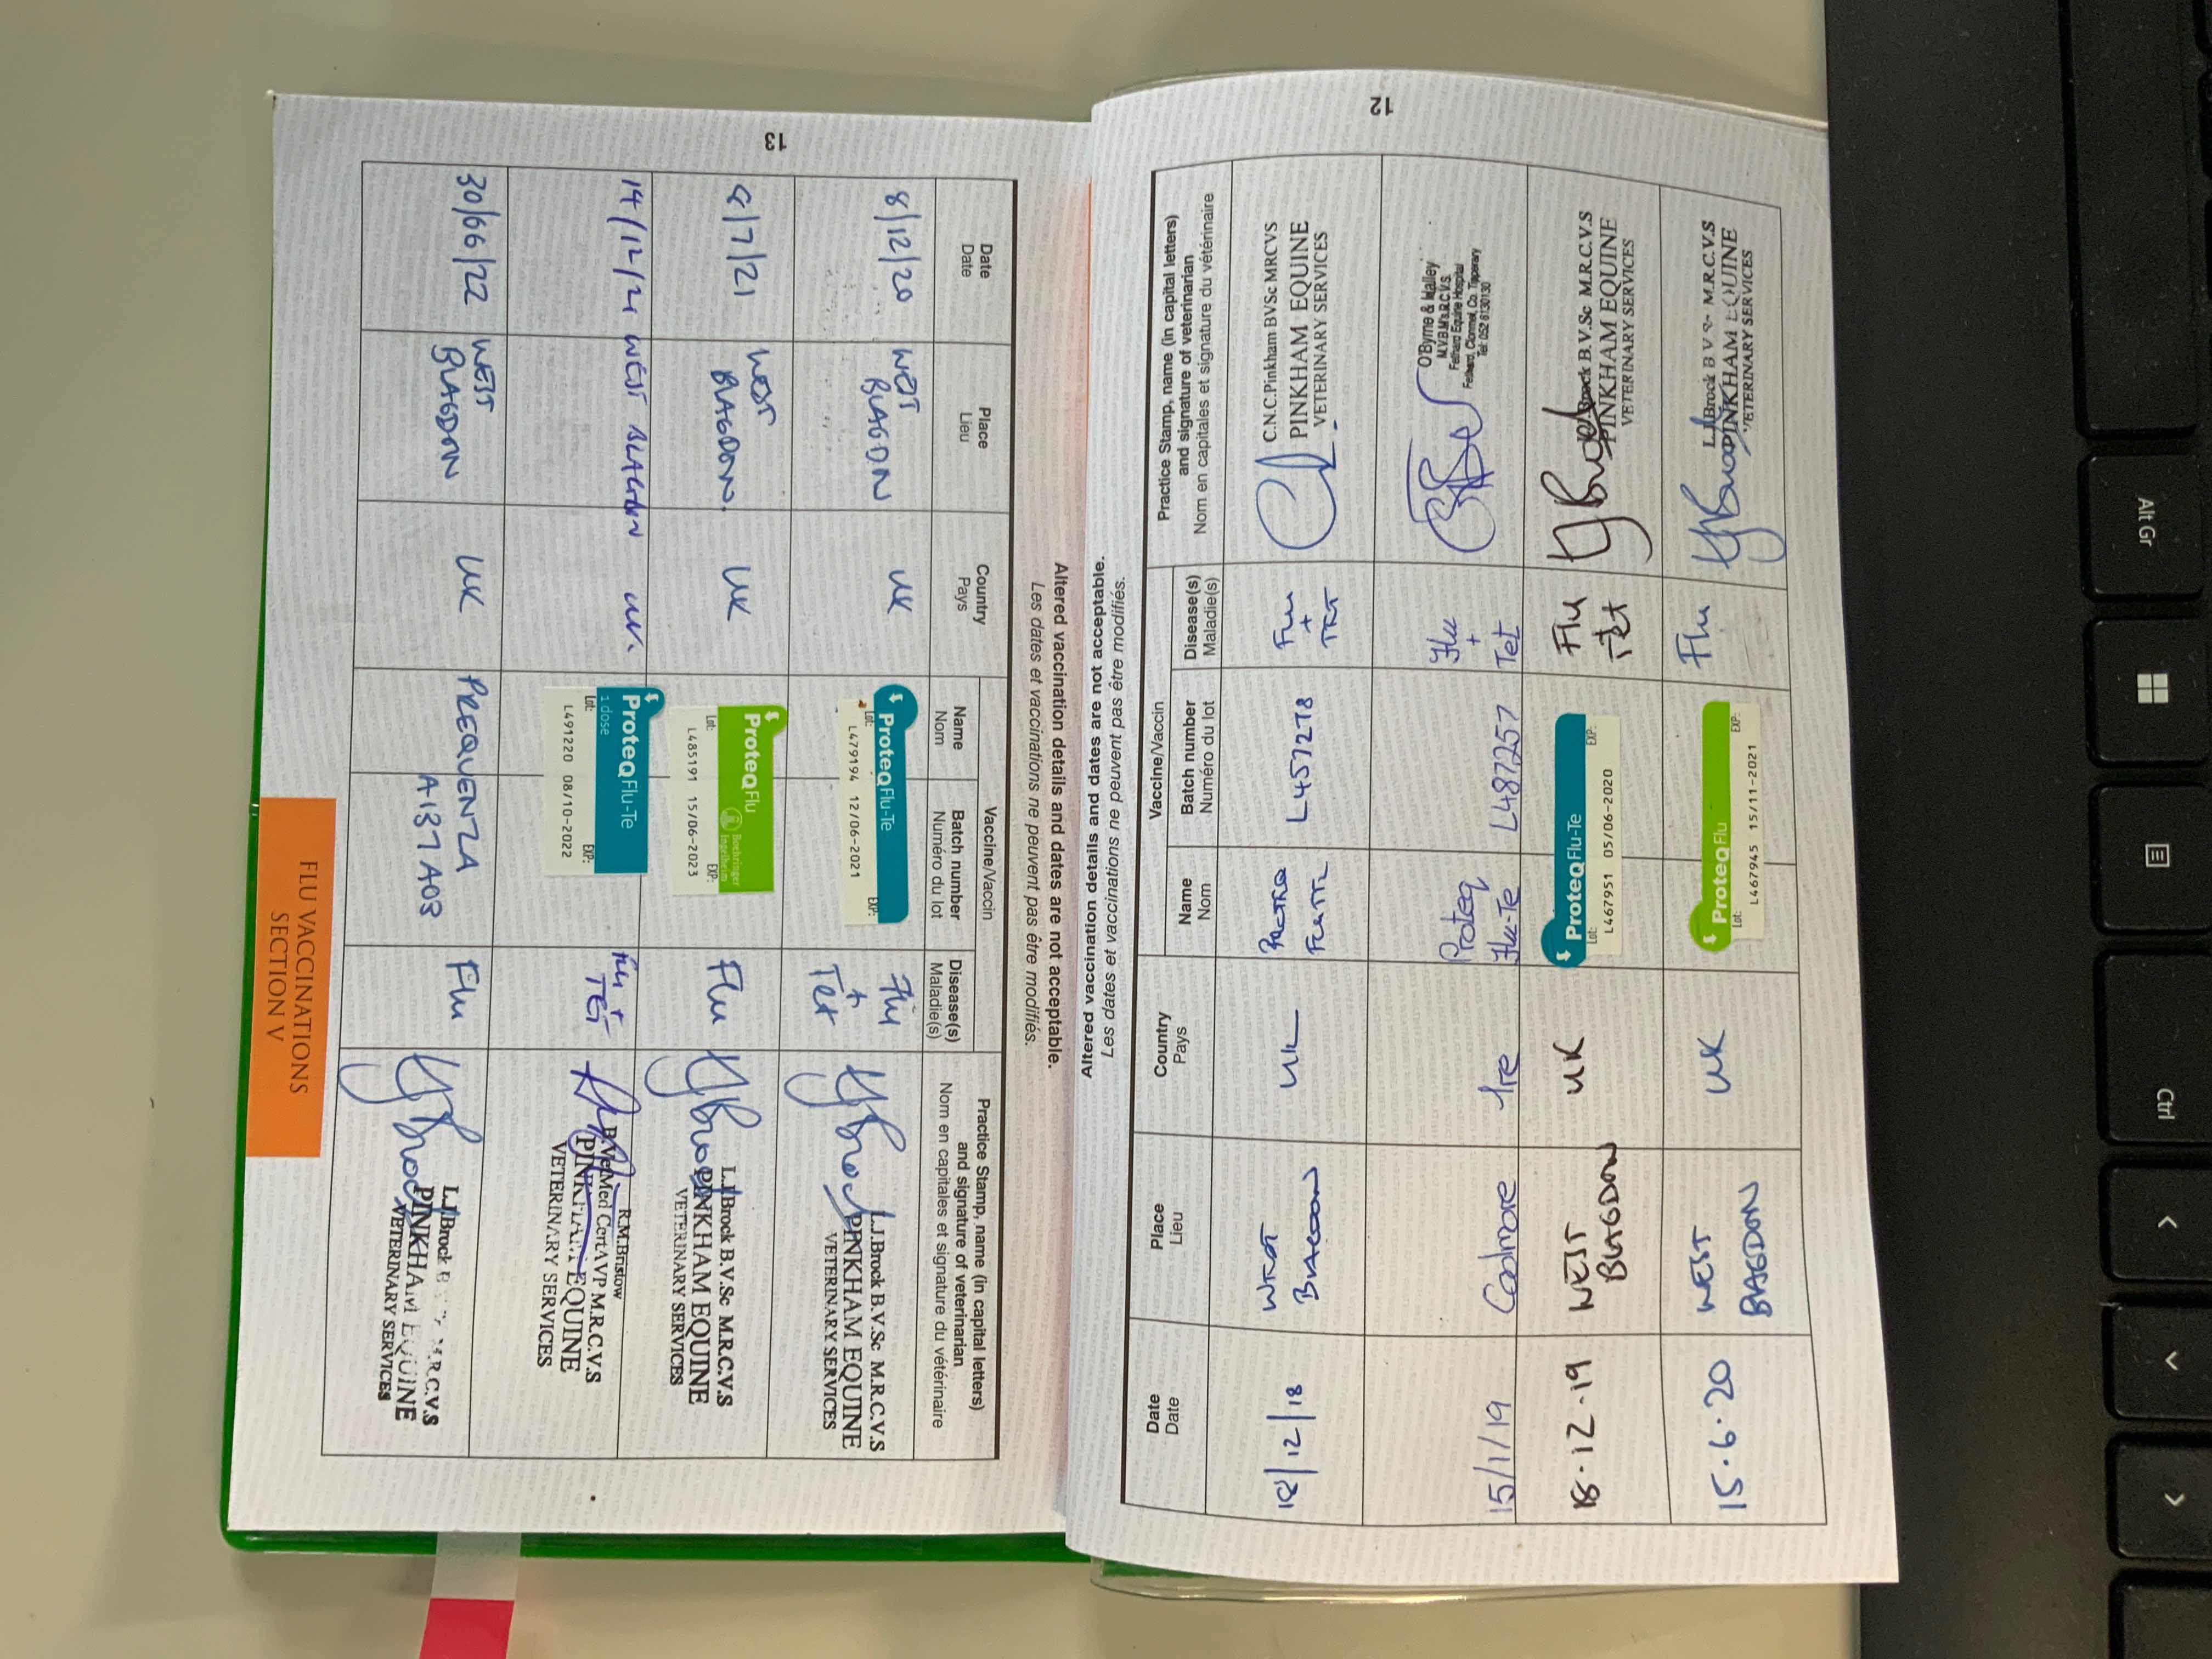 12
Date
Date
Place
Lieu
Country
Pays
Vaccine/Vaccin
Name
Nom
Batch number
Numéro du lot
Disease(s)
Maladie(s)
Practice Stamp, name (in capital letters)
and signature of veterinarian
Nom en capitales et signature du vétérinaire
18/12/18
WEST
BLAGDON
UK
L457278
Flu
+
TET
C.N.C.Pinkham BVSc MRCVS
PINKHAM EQUINE
VETERINARY SERVICES
15/1/19
Coolmore
Ire
Proteq
Flu-Te
L487257
Flu
+
Tet
O'Byrne & Halley
M.V.B.M's.R.C.V.S.
Fethard Equine Hospital
Fethard, Clonmel, Co. Tipperary
Tel: 052 6130130
18.12.19
WEST
BLAGDON
UK
ProteqFlu-Te
Lot: EXP:
L467951 05/06-2020
Flu
Tet
L.J.Brock B.V.Sc M.R.C.V.S
PINKHAM EQUINE
VETERINARY SERVICES
15.6.20
WEST
BLAGDON
UK
ProteqFlu
Lot: EXP:
L467945 15/11-2021
Flu
L.J.Brock B V S M.R.C.V.S
PINKHAM EQUINE
VETERINARY SERVICES
Altered vaccination details and dates are not acceptable.
Les dates et vaccinations ne peuvent pas être modifiés.
13
Altered vaccination details and dates are not acceptable.
Les dates et vaccinations ne peuvent pas être modifiés.
Date
Date
Place
Lieu
Country
Pays
Vaccine/Vaccin
Name
Nom
Batch number
Numéro du lot
Disease(s)
Maladie(s)
Practice Stamp, name (in capital letters)
and signature of veterinarian
Nom en capitales et signature du vétérinaire
8/12/20
WEST
BLAGDON
UK
ProteqFlu-Te
Lot: EXP:
L479194 12/06-2021
Flu
+
Tet
L.J.Brock B.V.Sc M.R.C.V.S
PINKHAM EQUINE
VETERINARY SERVICES
8/7/21
WEST
BLAGDON.
UK
ProteqFlu
Boehringer
Ingelheim
Lot: EXP:
L485191 15/06-2023
Flu
L.J.Brock B.V.Sc M.R.C.V.S
PINKHAM EQUINE
VETERINARY SERVICES
14/12/21
WEST BLAGDON
UK.
ProteqFlu-Te
1 dose
Lot: EXP:
L491220 08/10-2022
Flu +
TET
R.M.Bristow
B.VetMed CertAVP M.R.C.V.S
PINKHAM EQUINE
VETERINARY SERVICES
30/06/22
WEST
BLAGDON
UK
PREQUENZA
A137A03
Flu
L.J.Brock M.R.C.V.S
PINKHAM EQUINE
VETERINARY SERVICES
FLU VACCINATIONS
SECTION V
Alt Gr
Ctrl